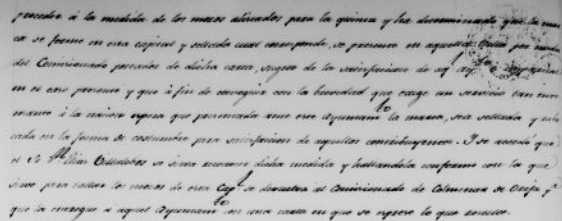 proceder á la medida de los mozos alistados para la quinta y ha determinado que la mar
ca se forme en esa capital y sellada cual corresponde, se presente en aquella por medio
del Comisionado portador de dicha carta, sugeto de la satisfaccion de aql Ayto
en el caso presente y que á fin de conseguir con la brevedad que exige un servicio tan
á la nacion espera que presentada que este Ayunto la marca, sea sellada y
cada en la forma de costumbre para satisfaccion de aquellos contribuyentes. Y se acordó que
el Sr Dn Elias Villalobos se sirva reconocer dicha medida y hallandola conforme con la que
sirve para tallar los mozos de esta Capl se devuelva al Comisionado de Colmenar de Oreja pa
que la entregue á aquel Ayuntamto con una carta en que se esprese lo que resulte.